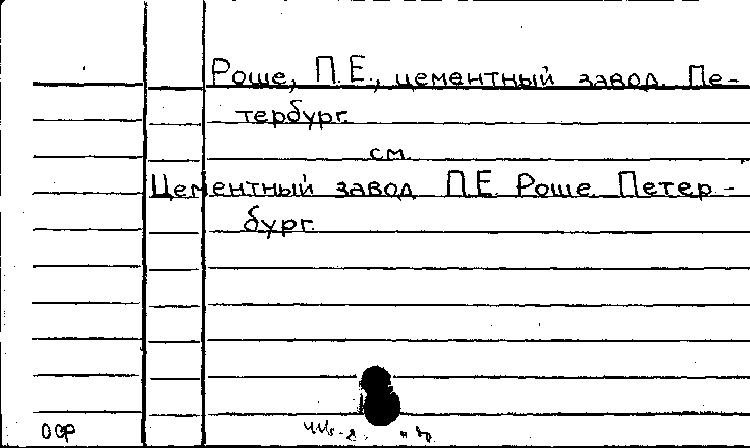 Роше, П.Е., цементный завод. Пе-
тербург.
см.
Цементный завод П.Е. Роше. Петер-
бург.
ОСФ